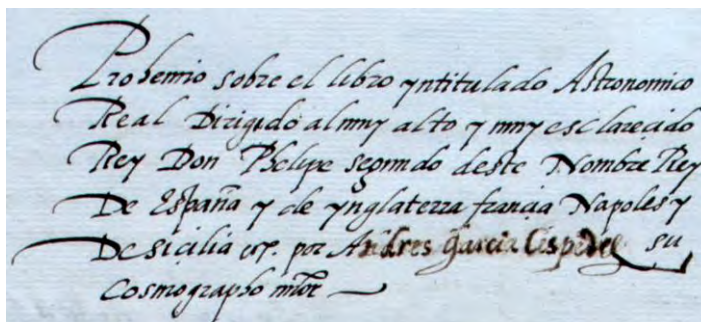 Prohemio sobre el libro yntitulado Astronomico
Real Dirigido al muy alto y muy esclarecido
Rey Don Phelipe segundo deste Nombre Rey
De España y de ynglaterra francia Napoles y
De sicilia etc. por Andres garcia Cespedes su
Cosmographo mor